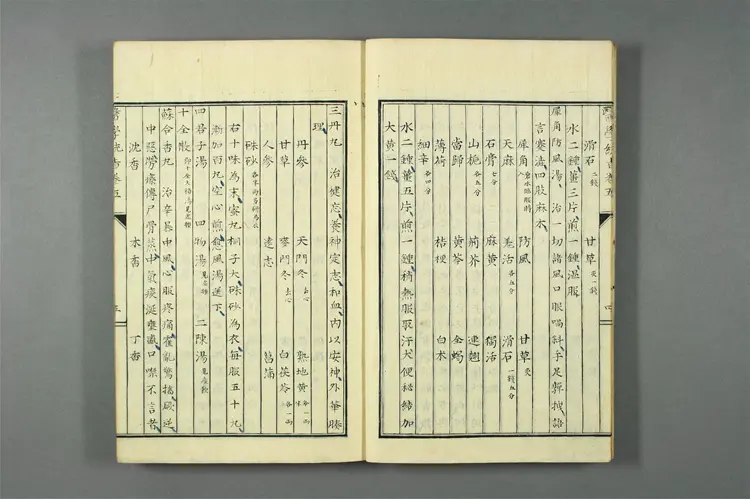 滑石二錢 甘草炙一錢
水二鍾薑三片煎一鍾溫服
犀角防風湯 治一切諸風口眼喎斜手足嚲拽語
言蹇澁四肢麻木
犀角 防風 甘草炙
天麻 羌活各五分 滑石一錢五分
石膏七分 麻黃 獨活
山梔各五分 荊芥 連翹
當歸 黃芩 全蝎
薄荷 桔梗 白朮
細辛各四分
水二鍾薑五片煎一鍾稍熱服取汗大便秘結加
大黃一錢
三丹丸 治健忘養神定志和血內以安神外華腠
理
丹參 天門冬去心 熟地黃
甘草 麥門冬去心 白茯苓各一兩
人參 遠志 菖蒲
硃砂
右十味為末蜜丸桐子大硃砂為衣每服五十丸
漸加百丸空心煎愈風湯送下
四君子湯 四物湯 二陳湯
十全散
蘇合香丸 治卒暴中風心腹疼痛霍亂驚搐厥逆
中惡勞瘵傳尸骨蒸中氣痰涎壅盛口噤不言者
沈香 木香 丁香